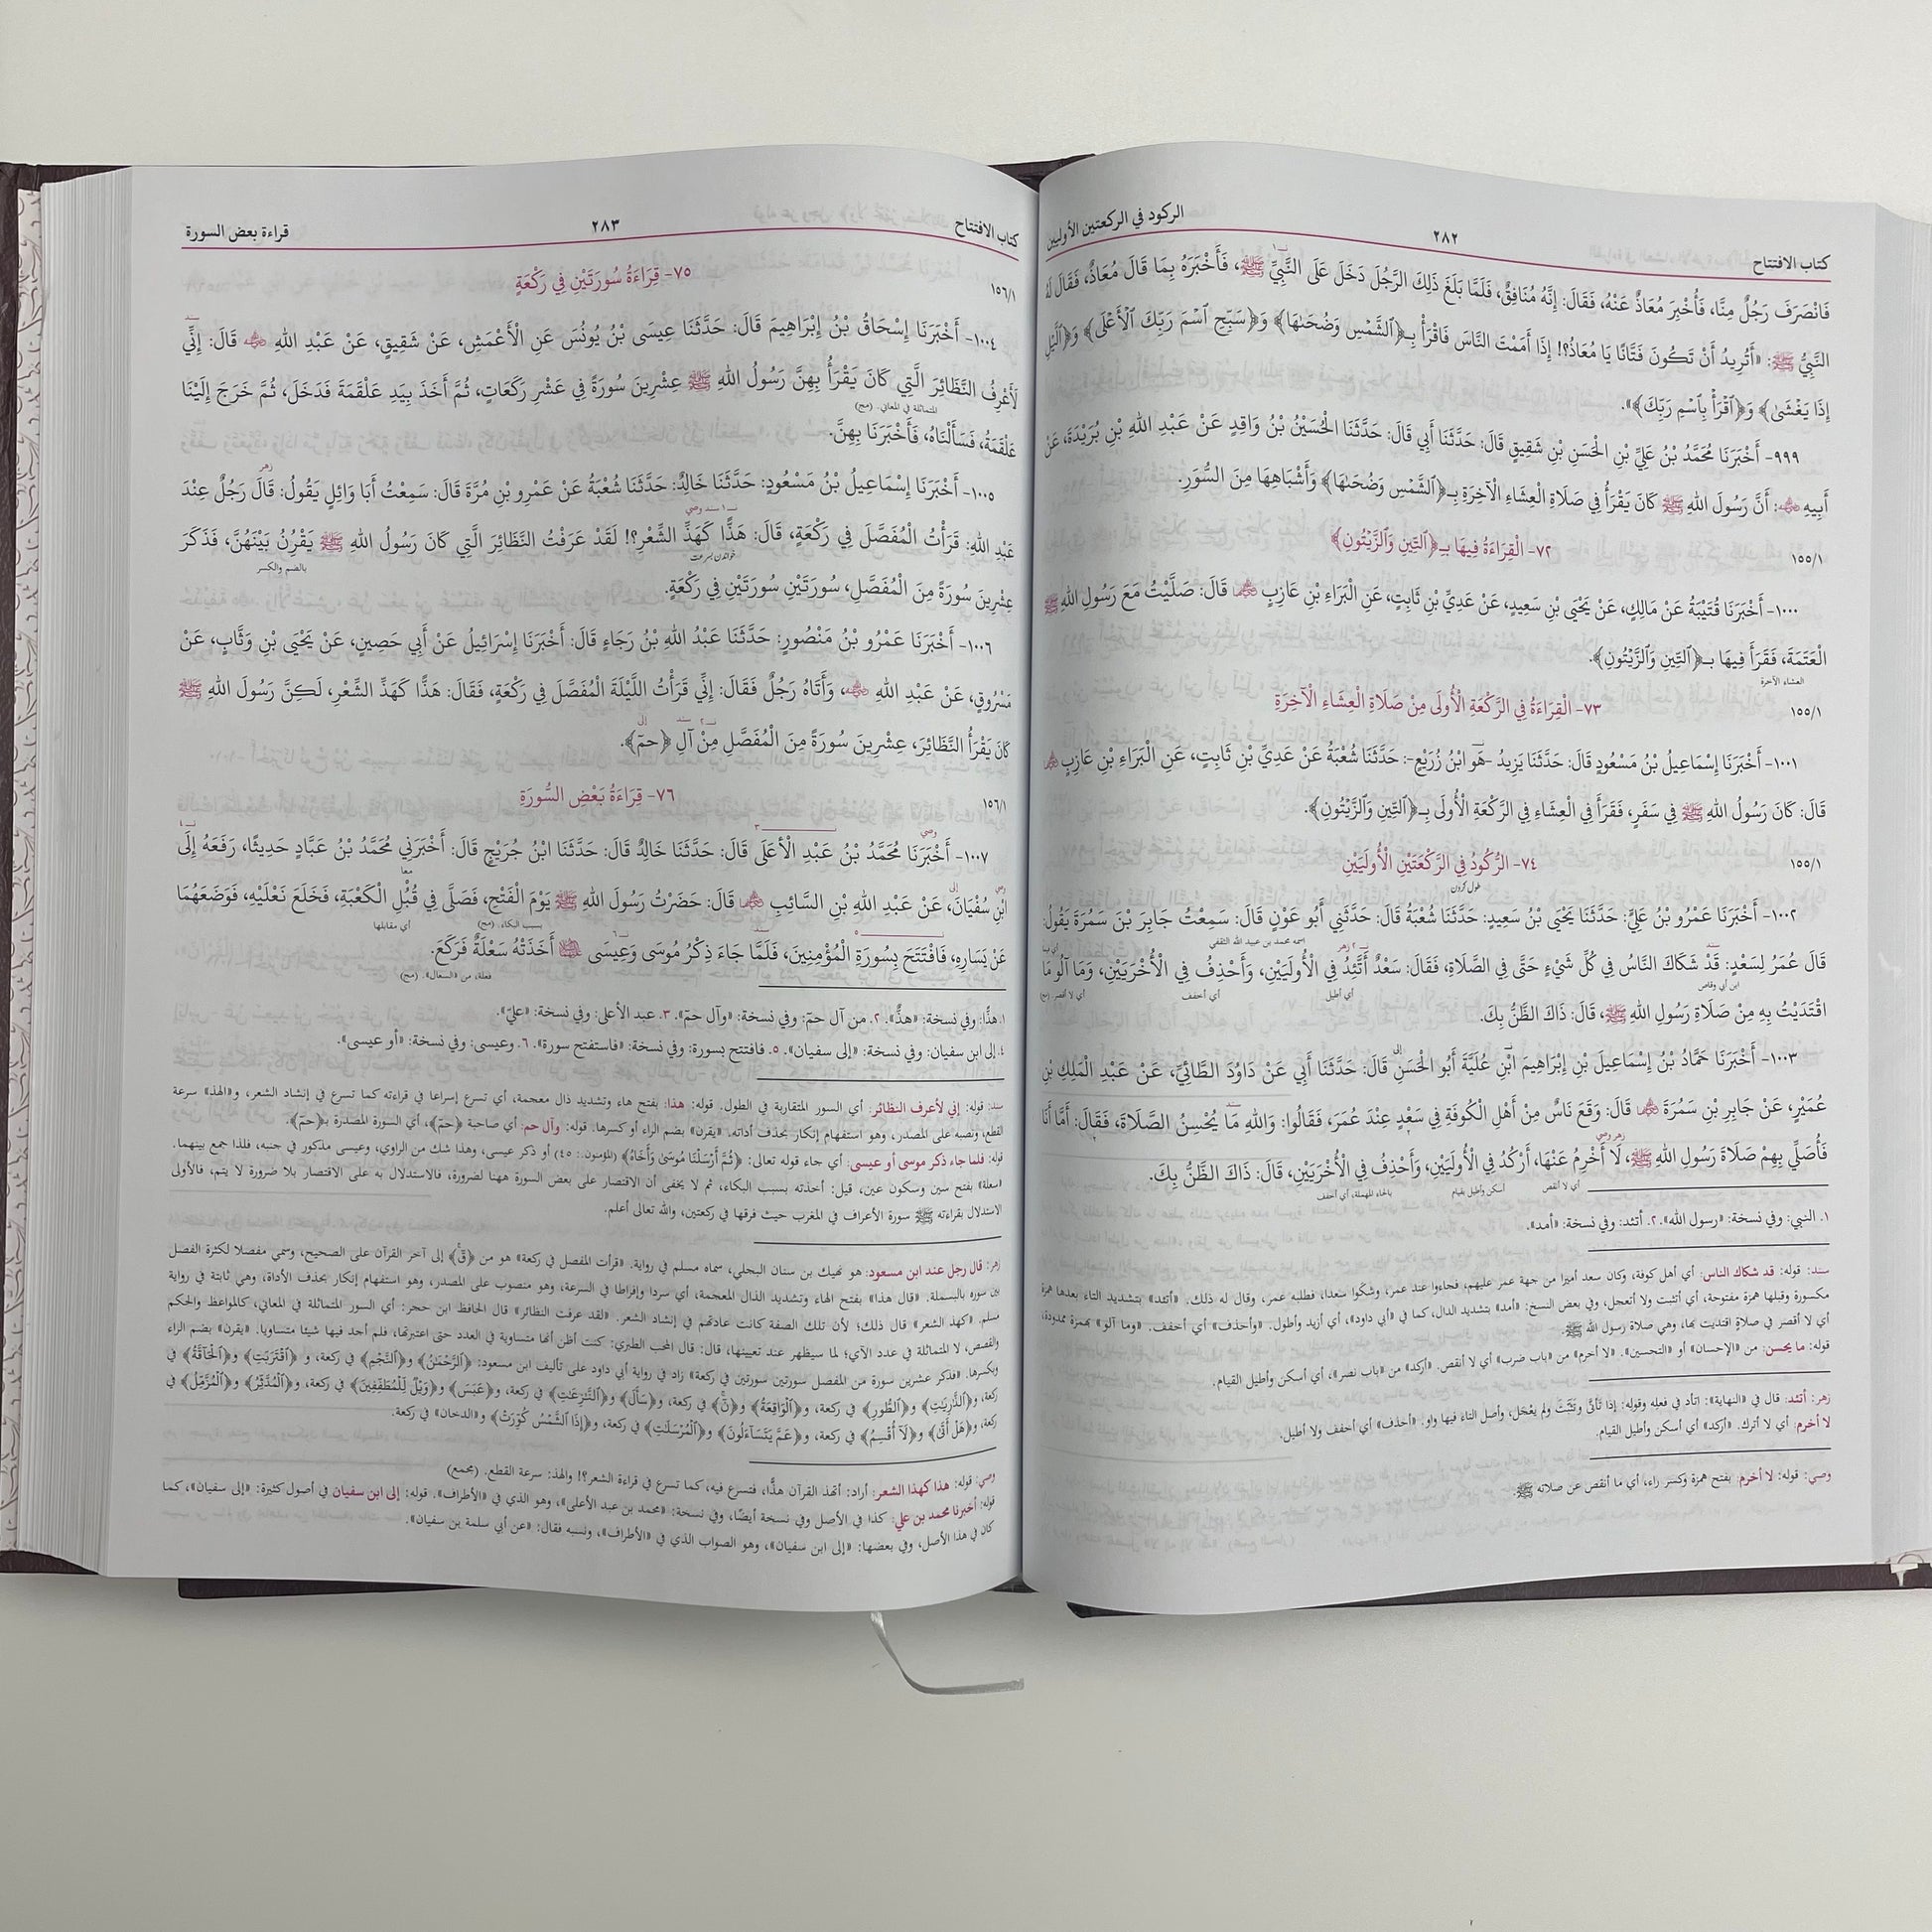 كتاب الافتتاح ٢٨٢ الركود في الركعتين الأوليين
فَانْصَرَفَ رَجُلٌ مِنَّا، فَأُخْبِرَ مُعَاذٌ عَنْهُ، فَقَالَ: إِنَّهُ مُنَافِقٌ، فَلَمَّا بَلَغَ ذَلِكَ الرَّجُلَ دَخَلَ عَلَى النَّبِيِّ ﷺ، فَأَخْبَرَهُ بِمَا قَالَ مُعَاذٌ، فَقَالَ لَهُ
النَّبِيُّ ﷺ: «أَتُرِيدُ أَنْ تَكُونَ فَتَّانًا يَا مُعَاذُ؟! إِذَا أَمَمْتَ النَّاسَ فَاقْرَأْ بِـ﴿الشَّمْسِ وَضُحَىٰهَا﴾ وَ﴿سَبِّحِ ٱسْمَ رَبِّكَ ٱلْأَعْلَى﴾ وَ﴿ٱلَّيْلِ
إِذَا يَغْشَىٰ﴾ وَ﴿ٱقْرَأْ بِٱسْمِ رَبِّكَ﴾».
٩٩٩- أَخْبَرَنَا مُحَمَّدُ بْنُ عَلِيِّ بْنِ الْحَسَنِ بْنِ شَقِيقٍ قَالَ: حَدَّثَنَا أَبِي قَالَ: حَدَّثَنَا الْحُسَيْنُ بْنُ وَاقِدٍ عَنْ عَبْدِ اللهِ بْنِ بُرَيْدَةَ، عَنْ
أَبِيهِ ﷺ: أَنَّ رَسُولَ اللهِ ﷺ كَانَ يَقْرَأُ فِي صَلَاةِ الْعِشَاءِ الْآخِرَةِ بِـ﴿الشَّمْسِ وَضُحَىٰهَا﴾ وَأَشْبَاهِهَا مِنَ السُّوَرِ.
١٥٥/١ ٧٢- الْقِرَاءَةُ فِيهَا بِـ﴿ٱلتِّينِ وَٱلزَّيْتُونِ﴾
١٠٠٠- أَخْبَرَنَا قُتَيْبَةُ عَنْ مَالِكٍ، عَنْ يَحْيَى بْنِ سَعِيدٍ، عَنْ عَدِيِّ بْنِ ثَابِتٍ، عَنِ الْبَرَاءِ بْنِ عَازِبٍ ﷺ قَالَ: صَلَّيْتُ مَعَ رَسُولِ اللهِ ﷺ
الْعَتَمَةَ، فَقَرَأَ فِيهَا بِـ﴿ٱلتِّينِ وَٱلزَّيْتُونِ﴾.
العشاء الآخرة
١٥٥/١ ٧٣- الْقِرَاءَةُ فِي الرَّكْعَةِ الْأُولَى مِنْ صَلَاةِ الْعِشَاءِ الْآخِرَةِ
١٠٠١- أَخْبَرَنَا إِسْمَاعِيلُ بْنُ مَسْعُودٍ قَالَ: حَدَّثَنَا يَزِيدُ -هَو ابْنُ زُرَيْعٍ-: حَدَّثَنَا شُعْبَةُ عَنْ عَدِيِّ بْنِ ثَابِتٍ، عَنِ الْبَرَاءِ بْنِ عَازِبٍ
قَالَ: كَانَ رَسُولُ اللهِ ﷺ فِي سَفَرٍ، فَقَرَأَ فِي الْعِشَاءِ فِي الرَّكْعَةِ الْأُولَى بِـ﴿ٱلتِّينِ وَٱلزَّيْتُونِ﴾.
١٥٥/١ ٧٤- الرُّكُودُ فِي الرَّكْعَتَيْنِ الْأُولَيَيْنِ
طول كردن
١٠٠٢- أَخْبَرَنَا عَمْرُو بْنُ عَلِيٍّ: حَدَّثَنَا يَحْيَى بْنُ سَعِيدٍ: حَدَّثَنَا شُعْبَةُ قَالَ: حَدَّثَنِي أَبُو عَوْنٍ قَالَ: سَمِعْتُ جَابِرَ بْنَ سَمُرَةَ يَقُولُ:
اسمه محمد بن عبيد الله الثقفي
قَالَ عُمَرُ لِسَعْدٍ: قَدْ شَكَاكَ النَّاسُ فِي كُلِّ شَيْءٍ حَتَّى فِي الصَّلَاةِ، فَقَالَ: سَعْدٌ أَتَّئِدُ فِي الْأُولَيَيْنِ، وَأَحْذِفُ فِي الْأُخْرَيَيْنِ، وَمَا آلُو مَا
ابن أبي وقاص أي أطيل أي أخفف أي لا أقصر. (مج)
اقْتَدَيْتُ بِهِ مِنْ صَلَاةِ رَسُولِ اللهِ ﷺ، قَالَ: ذَاكَ الظَّنُّ بِكَ.
١٠٠٣- أَخْبَرَنَا حَمَّادُ بْنُ إِسْمَاعِيلَ بْنِ إِبْرَاهِيمَ ابْنِ عُلَيَّةَ أَبُو الْحَسَنِ قَالَ: حَدَّثَنَا أَبِي عَنْ دَاوُدَ الطَّائِيِّ، عَنْ عَبْدِ الْمَلِكِ بْنِ
عُمَيْرٍ، عَنْ جَابِرِ بْنِ سَمُرَةَ ﷺ قَالَ: وَقَعَ نَاسٌ مِنْ أَهْلِ الْكُوفَةِ فِي سَعْدٍ عِنْدَ عُمَرَ، فَقَالُوا: وَاللهِ مَا يُحْسِنُ الصَّلَاةَ، فَقَالَ: أَمَّا أَنَا
فَأُصَلِّي بِهِمْ صَلَاةَ رَسُولِ اللهِ ﷺ، لَا أَخْرِمُ عَنْهَا، أَرْكُدُ فِي الْأُولَيَيْنِ، وَأَحْذِفُ فِي الْأُخْرَيَيْنِ، قَالَ: ذَاكَ الظَّنُّ بِكَ.
أي لا أنقص أسكن وأطيل بقيام بالحاء المهملة، أي أخفف
١. النبي: وفي نسخة: «رسول الله». ٢. أتئد: وفي نسخة: «أمد».
سند: قوله: قد شكاك الناس: أي أهل كوفة، وكان سعد أميرا من جهة عمر عليهم، فجاءوا عند عمر، وشكوا سعدا، فطلبه عمر، وقال له ذلك. «أتئد» بتشديد التاء بعدها همزة
مكسورة وقبلها همزة مفتوحة، أي أتثبت ولا أتعجل، وفي بعض النسخ: «أمد» بتشديد الدال، كما في «أبي داود»، أي أزيد وأطول. «وأحذف» أي أخفف. «وما آلو» بهمزة ممدودة،
أي لا أقصر في صلاةٍ اقتديت بها، وهي صلاة رسول الله ﷺ.
قوله: ما يحسن: من «الإحسان» أو «التحسين». «لا أخرم» من «باب ضرب» أي لا أنقص. «أركد» من «باب نصر»، أي أسكن وأطيل القيام.
زهر: أتئد: قال في «النهاية»: اتأد في فعله وقوله: إذا تَأَنَّى وتَثَبَّتَ ولم يعْجَل، وأصل التاء فيها واو: «أحذف» أي أخفف ولا أطيل.
لا أخرم: أي لا أترك. «أركد» أي أسكن وأطيل القيام.
وصي: قوله: لا أخرم: بفتح همزة وكسر راء، أي ما أنقص عن صلاته ﷺ.
كتاب الافتتاح ٢٨٣ قراءة بعض السورة
١٥٦/١ ٧٥- قِرَاءَةُ سُورَتَيْنِ فِي رَكْعَةٍ
١٠٠٤- أَخْبَرَنَا إِسْحَاقُ بْنُ إِبْرَاهِيمَ قَالَ: حَدَّثَنَا عِيسَى بْنُ يُونُسَ عَنِ الْأَعْمَشِ، عَنْ شَقِيقٍ، عَنْ عَبْدِ اللهِ ﷺ قَالَ: إِنِّي
لَأَعْرِفُ النَّظَائِرَ الَّتِي كَانَ يَقْرَأُ بِهِنَّ رَسُولُ اللهِ ﷺ عِشْرِينَ سُورَةً فِي عَشْرِ رَكَعَاتٍ، ثُمَّ أَخَذَ بِيَدِ عَلْقَمَةَ فَدَخَلَ، ثُمَّ خَرَجَ إِلَيْنَا
المتماثلة في المعاني. (مج)
عَلْقَمَةُ، فَسَأَلْنَاهُ، فَأَخْبَرَنَا بِهِنَّ.
١٠٠٥- أَخْبَرَنَا إِسْمَاعِيلُ بْنُ مَسْعُودٍ: حَدَّثَنَا خَالِدٌ: حَدَّثَنَا شُعْبَةُ عَنْ عَمْرِو بْنِ مُرَّةَ قَالَ: سَمِعْتُ أَبَا وَائِلٍ يَقُولُ: قَالَ رَجُلٌ عِنْدَ
عَبْدِ اللهِ: قَرَأْتُ الْمُفَصَّلَ فِي رَكْعَةٍ، قَالَ: هَذًّا كَهَذِّ الشِّعْرِ؟! لَقَدْ عَرَفْتُ النَّظَائِرَ الَّتِي كَانَ رَسُولُ اللهِ ﷺ يَقْرُنُ بَيْنَهُنَّ، فَذَكَرَ
خواندن بسرعت بالضم والكسر
عِشْرِينَ سُورَةً مِنَ الْمُفَصَّلِ، سُورَتَيْنِ سُورَتَيْنِ فِي رَكْعَةٍ.
١٠٠٦- أَخْبَرَنَا عَمْرُو بْنُ مَنْصُورٍ: حَدَّثَنَا عَبْدُ اللهِ بْنُ رَجَاءٍ قَالَ: أَخْبَرَنَا إِسْرَائِيلُ عَنْ أَبِي حَصِينٍ، عَنْ يَحْيَى بْنِ وَثَّابٍ، عَنْ
مَسْرُوقٍ، عَنْ عَبْدِ اللهِ ﷺ، وَأَتَاهُ رَجُلٌ فَقَالَ: إِنِّي قَرَأْتُ اللَّيْلَةَ الْمُفَصَّلَ فِي رَكْعَةٍ، فَقَالَ: هَذًّا كَهَذِّ الشِّعْرِ، لَكِنَّ رَسُولَ اللهِ ﷺ
كَانَ يَقْرَأُ النَّظَائِرَ، عِشْرِينَ سُورَةً مِنَ الْمُفَصَّلِ مِنْ آلِ ﴿حمٓ﴾.
١٥٦/١ ٧٦- قِرَاءَةُ بَعْضِ السُّورَةِ
١٠٠٧- أَخْبَرَنَا مُحَمَّدُ بْنُ عَبْدِ الْأَعْلَى قَالَ: حَدَّثَنَا خَالِدٌ قَالَ: حَدَّثَنَا ابْنُ جُرَيْجٍ قَالَ: أَخْبَرَنِي مُحَمَّدُ بْنُ عَبَّادٍ حَدِيثًا، رَفَعَهُ إِلَى
ابْنِ سُفْيَانَ، عَنْ عَبْدِ اللهِ بْنِ السَّائِبِ ﷺ قَالَ: حَضَرْتُ رَسُولَ اللهِ ﷺ يَوْمَ الْفَتْحِ، فَصَلَّى فِي قُبُلِ الْكَعْبَةِ، فَخَلَعَ نَعْلَيْهِ، فَوَضَعَهُمَا
بسبب البكاء. (مج) أي مقابلها
عَنْ يَسَارِهِ، فَافْتَتَحَ بِسُورَةِ الْمُؤْمِنِينَ، فَلَمَّا جَاءَ ذِكْرُ مُوسَى وَعِيسَى أَخَذَتْهُ سَعْلَةٌ فَرَكَعَ.
فعلة، من «السعال». (مج)
١. هذًّا: وفي نسخة: «هذٌّ». ٢. من آل حمٓ: وفي نسخة: «وآل حمٓ». ٣. عبد الأعلى: وفي نسخة: «علي».
٤. إلى ابن سفيان: وفي نسخة: «إلى سفيان». ٥. فافتتح بسورة: وفي نسخة: «فاستفتح سورة». ٦. وعيسى: وفي نسخة: «أو عيسى».
سند: قوله: إني لأعرف النظائر: أي السور المتقاربة في الطول. قوله: هذا: بفتح هاء وتشديد ذال معجمة، أي تسرع إسراعا في قراءته كما تسرع في إنشاد الشعر، و«الهذ» سرعة
القطع، ونصبه على المصدر، وهو استفهام إنكار بحذف أداته. «يقرن» بضم الراء أو كسرها. قوله: وآل حم: أي صاحبة ﴿حمٓ﴾، أي السورة المصدرة بـ﴿حمٓ﴾.
قوله: فلما جاء ذكر موسى أو عيسى: أي جاء قوله تعالى: ﴿ثُمَّ أَرْسَلْنَا مُوسَىٰ وَأَخَاهُ﴾ (المؤمنون: ٤٥) أو ذكر عيسى، وهذا شك من الراوي، وعيسى مذكور في جنبه، فلذا جمع بينهما.
«سعلة» بفتح سين وسكون عين، قيل: أخذته بسبب البكاء، ثم لا يخفى أن الاقتصار على بعض السورة ههنا لضرورة، فالاستدلال به على الاقتصار بلا ضرورة لا يتم، فالأولى
الاستدلال بقراءته ﷺ سورة الأعراف في المغرب حيث فرقها في ركعتين، والله تعالى أعلم.
زهر: قال رجل عند ابن مسعود: هو نهيك بن سنان البجلي، سماه مسلم في رواية. «قرأت المفصل في ركعة» هو من ﴿قٓ﴾ إلى آخر القرآن على الصحيح، وسمي مفصلا لكثرة الفصل
بين سوره بالبسملة. «قال هذا» بفتح الهاء وتشديد الذال المعجمة، أي سردا وإفراطا في السرعة، وهو منصوب على المصدر، وهو استفهام إنكار بحذف الأداة، وهي ثابتة في رواية
مسلم. «كهذ الشعر» قال ذلك؛ لأن تلك الصفة كانت عادتهم في إنشاد الشعر. «لقد عرفت النظائر» قال الحافظ ابن حجر: أي السور المتماثلة في المعاني، كالمواعظ والحكم
والقصص، لا المتماثلة في عدد الآي؛ لما سيظهر عند تعيينها، قال: قال المحب الطبري: كنت أظن أنها متساوية في العدد حتى اعتبرتها، فلم أجد فيها شيئا متساويا. «يقرن» بضم الراء
وبكسرها. «فذكر عشرين سورة من المفصل سورتين سورتين في ركعة» زاد في رواية أبي داود على تأليف ابن مسعود: ﴿ٱلرَّحْمَٰنُ﴾ و﴿ٱلنَّجْمِ﴾ في ركعة، و ﴿ٱقْتَرَبَتِ﴾ و﴿ٱلْحَاقَّةُ﴾ في
ركعة، و﴿ٱلذَّٰرِيَٰتِ﴾ و﴿ٱلطُّورِ﴾ في ركعة، و﴿ٱلْوَاقِعَةُ﴾ و﴿نٓ﴾ في ركعة، و﴿سَأَلَ﴾ و﴿ٱلنَّٰزِعَٰتِ﴾ في ركعة، و﴿عَبَسَ﴾ و﴿وَيْلٌ لِّلْمُطَفِّفِينَ﴾ في ركعة، و﴿ٱلْمُدَّثِّرُ﴾ و﴿ٱلْمُزَّمِّلُ﴾ في
ركعة، و﴿هَلْ أَتَىٰ﴾ و﴿لَآ أُقْسِمُ﴾ في ركعة، و﴿عَمَّ يَتَسَآءَلُونَ﴾ و﴿ٱلْمُرْسَلَٰتِ﴾ في ركعة، و﴿إِذَا ٱلشَّمْسُ كُوِّرَتْ﴾ و«الدخان» في ركعة.
وصي: قوله: هذا كهذا الشعر: أراد: أتهذ القرآن هذًّا، فتسرع فيه، كما تسرع في قراءة الشعر؟! والهذ: سرعة القطع. (مجمع)
قوله: أخبرنا محمد بن علي: كذا في الأصل وفي نسخة أيضًا، وفي نسخة: «محمد بن عبد الأعلى»، وهو الذي في «الأطراف». قوله: إلى ابن سفيان في أصول كثيرة: «إلى سفيان»، كما
كان في هذا الأصل، وفي بعضها: «إلى ابن سفيان»، وهو الصواب الذي في «الأطراف»، ونسبه فقال: «عن أبي سلمة بن سفيان».